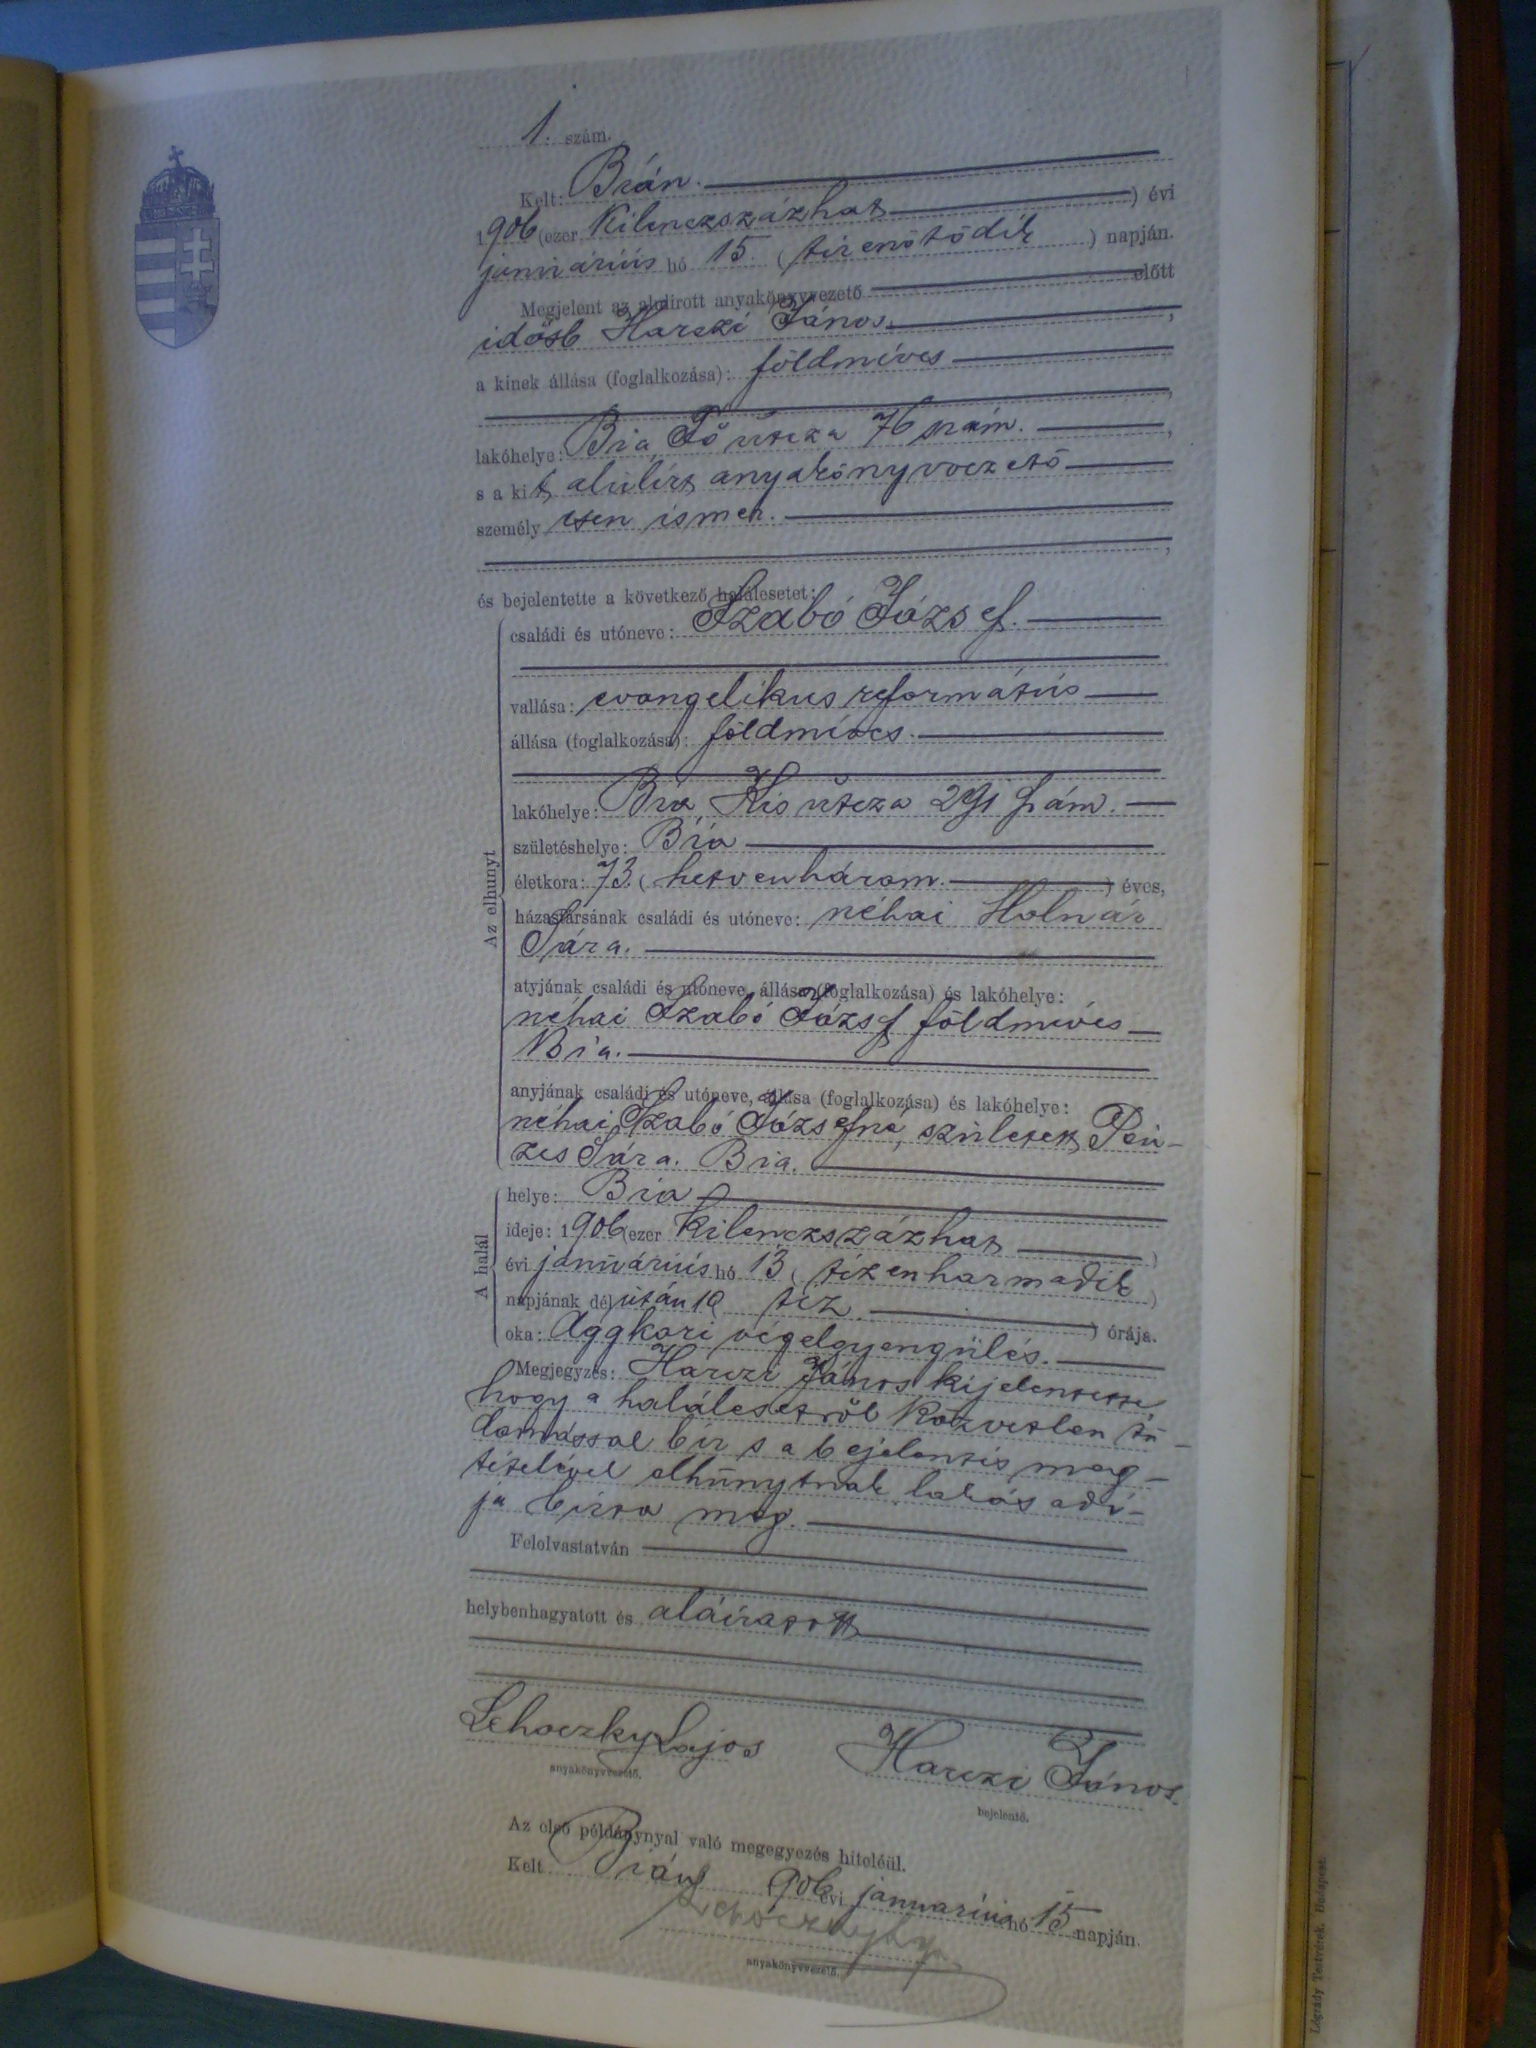 1. szám.
Kelt: Bián.
1906 (ezer kilenczszázhat) évi
januárius hó 15. (tizenötödik) napján.
Megjelent az alulirott anyakönyvvezető előtt
idősb Harczi János,
a kinek állása (foglalkozása): földmíves
lakóhelye: Bia, Fő utcza 76 szám.,
s a kit alulírt anyakönyvvezető
személyesen ismer.,
és bejelentette a következő halálesetet:
Az elhunyt
családi és utóneve: Szabó József.
vallása: evangelikus református
állása (foglalkozása): földmíves.
lakóhelye: Bia, Kis utcza 291 szám.
születéshelye: Bia
életkora: 73. (hetvenhárom.) éves,
házastársának családi és utóneve: néhai Molnár
Sára.
atyjának családi és utóneve, állása (foglalkozása) és lakóhelye:
néhai Szabó József földmíves
Bia.
anyjának családi és utóneve, állása (foglalkozása) és lakóhelye:
néhai Szabó Józsefné, született Pén-
zes Sára. Bia.
A halál
helye: Bia
ideje: 1906 (ezer kilenczszázhat)
évi januárius hó 13 (tizenharmadik)
napjának délután 10 tíz.) órája.
oka: Aggkori végelgyengülés.
Megjegyzés: Harczi János kijelentette
hogy a halálesetről közvetlen tu-
domással bír s a bejelentés meg-
tételével elhunytnak lakás adó-
ja bízta meg.
Felolvastatván
helybenhagyatott és aláíratott
Lehoczky Lajos Harczi János.
anyakönyvvezető. bejelentő.
Az első példánynyal való megegyezés hiteléül.
Kelt Bián, 1906 évi januárius hó 15 napján.
Lehoczky Lajos
anyakönyvvezető.
Légrády Testvérek, Budapest.